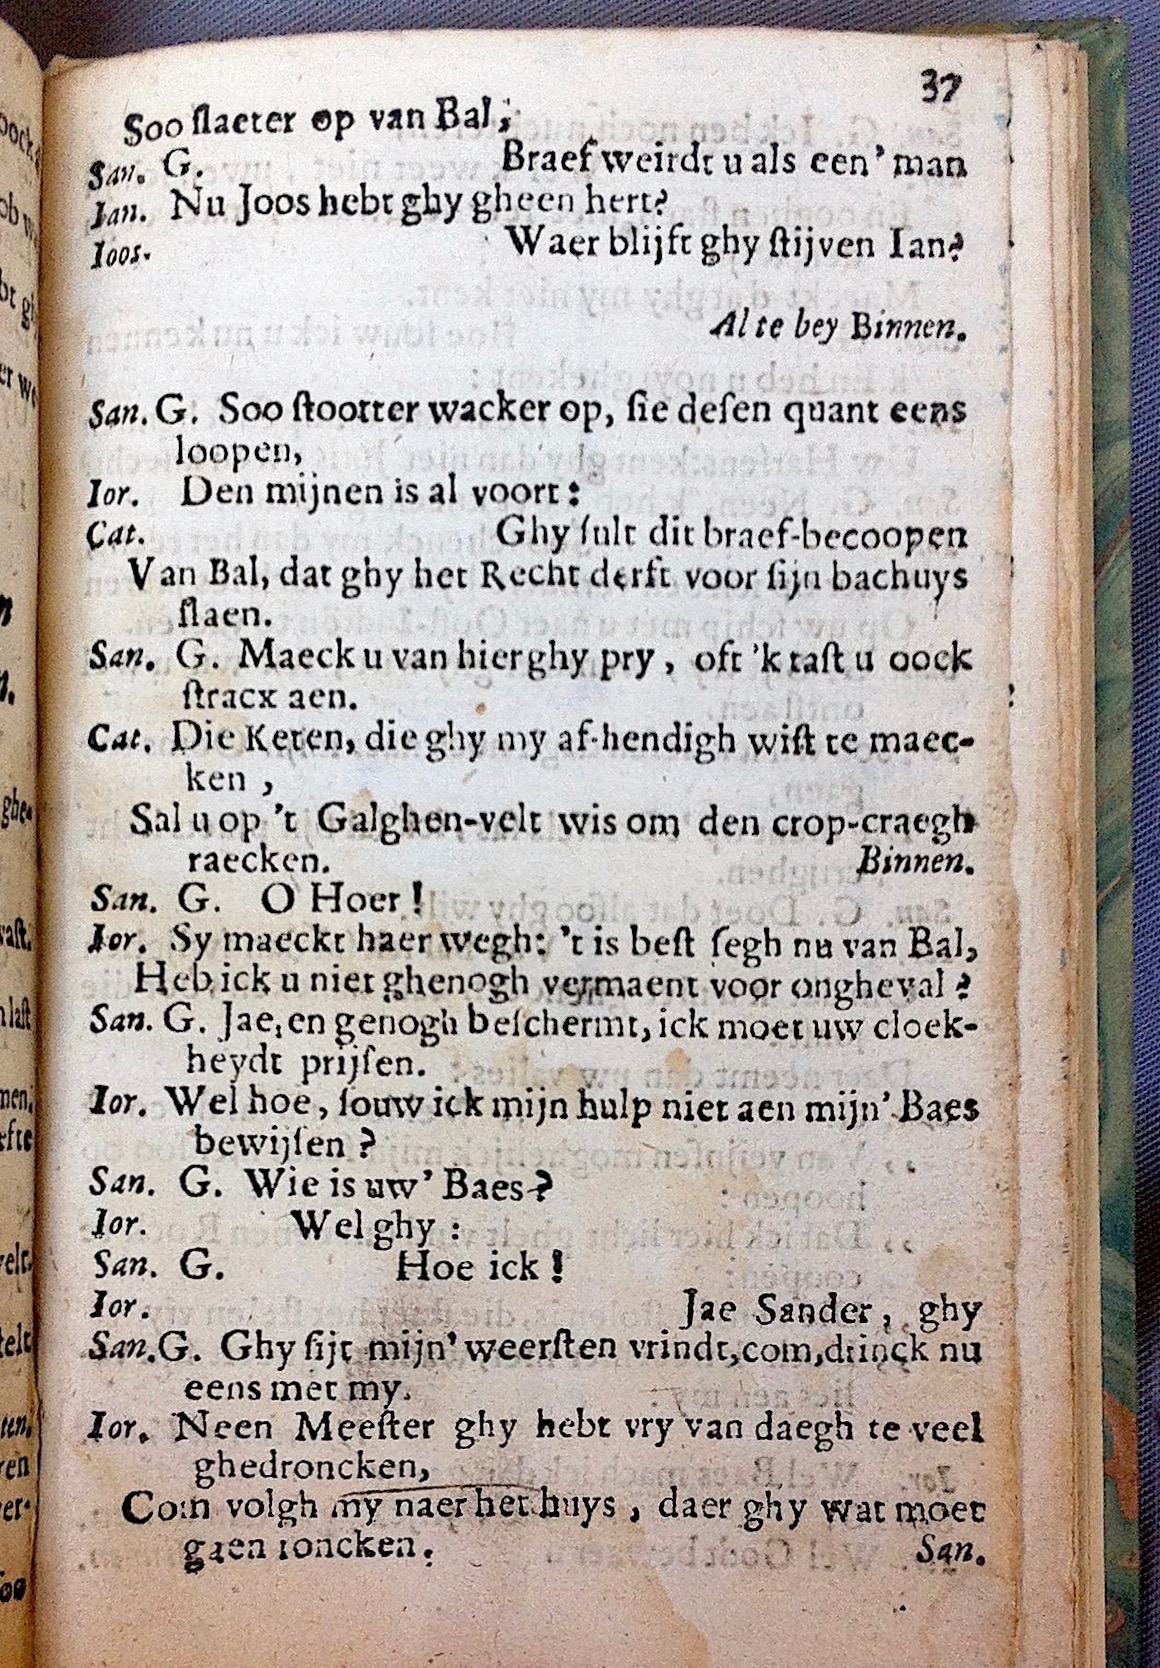 37
Soo slaeter op van Bal;
San. G. Braef weirdt u als een' man
Ian. Nu Joos hebt ghy gheen hert?
Ioos. Waer blijft ghy stijven Ian?
Al te bey Binnen.
San. G. Soo stootter wacker op, sie desen quant eens
loopen,
Ior. Den mijnen is al voort:
Cat. Ghy sult dit braef-becoopen
Van Bal, dat ghy het Recht derft voor sijn bachuys
slaen.
San. G. Maeck u van hier ghy pry, oft 'k tast u oock
stracx aen.
Cat. Die Keten, die ghy my af-hendigh wist te maec-
ken,
Sal u op 't Galghen-velt wis om den crop-craegh
raecken. Binnen.
San. G. O Hoer!
Ior. Sy maeckt haer wegh: 't is best segh nu van Bal,
Heb ick u niet ghenogh vermaent voor ongheval?
San. G. Jae, en genogh beschermt, ick moet uw cloek-
heydt prijsen.
Ior. Wel hoe, souw ick mijn hulp niet aen mijn' Baes
bewijsen?
San. G. Wie is uw' Baes?
Ior. Wel ghy:
San. G. Hoe ick!
Ior. Jae Sander, ghy
San. G. Ghy sijt mijn' weersten vrindt, com, drinck nu
eens met my.
Ior. Neen Meester ghy hebt vry van daegh te veel
ghedroncken,
Com volgh my naer het huys, daer ghy wat moet
gaen roncken.
San.